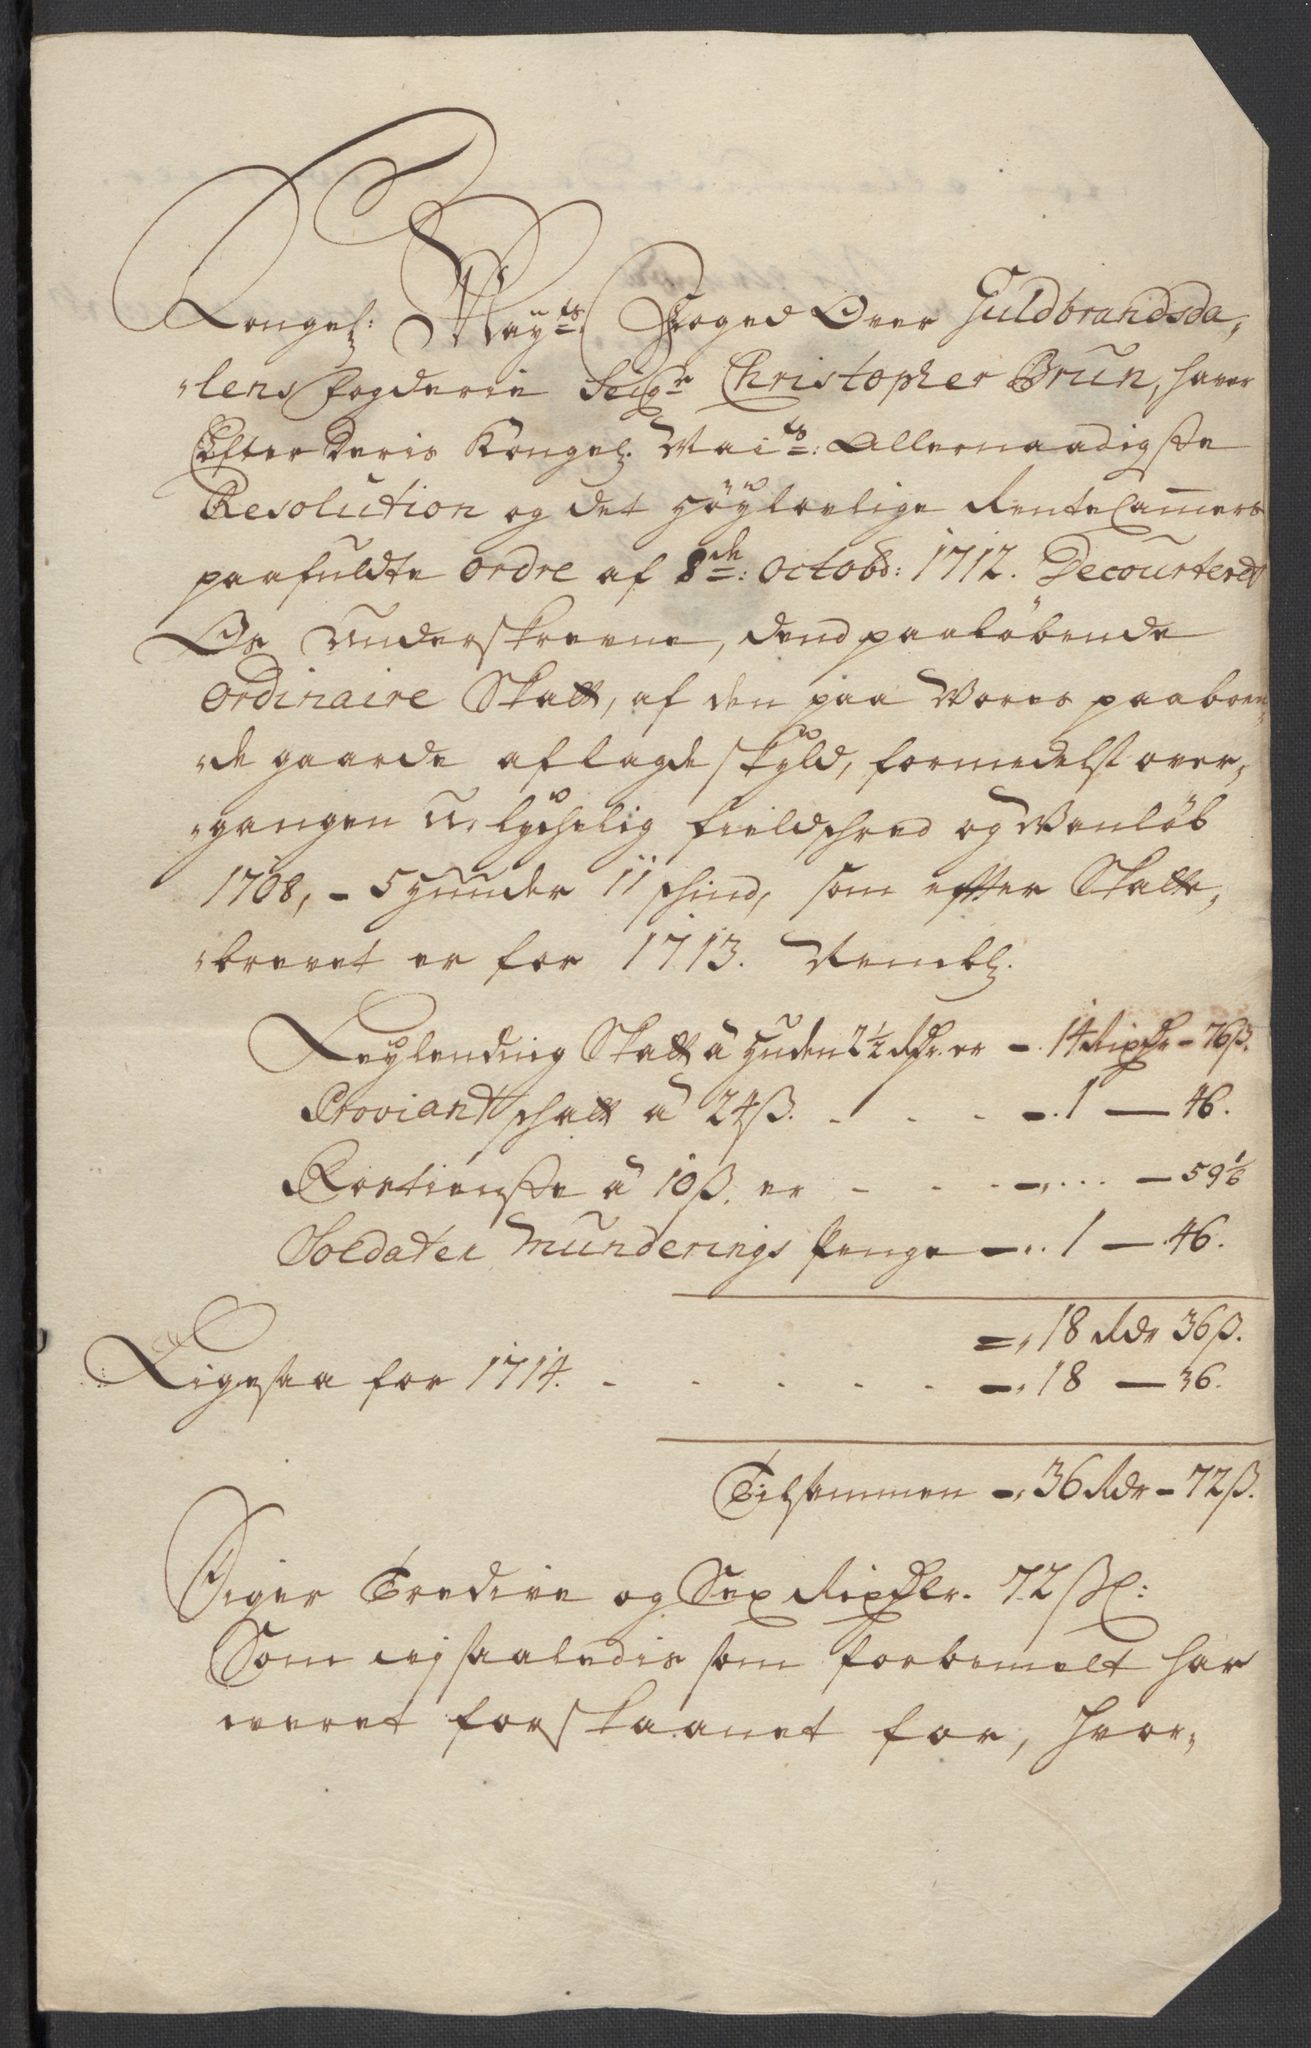 Kongel: Mayts: Foged Over Guldbrandsda,
„lens fogderie Seigr Christopher Brun, haver
Efter deris Kongel. Maits: Allernaadigste
Resolution og det Höylovlige RenteCamers
paafuldte ordre af 8de: octobr: 1712. Decourteret
Os Underskrevne, dend paaløbende
ordinaire Skatt, af den paa Vores paaboen„
„de gaarde aflagde skyld, formedelst over„
„gangen U„lychelig fieldschred og Vanløb
1708, - 5 Huuder 11 schind, som efter Skatte„
„brevet er for 1713. Nembl.
Leylending Skatt á Huden 2½ Rdr. er -. 14 Rixdr - 76 ß.
Proviant schatt á 24 ß. - - - -. 1 — 46.
Rostieniste á 10 ß. er - - - -„... — 59 1/6
Soldater Munderings Penge -„. 1 — 46.
=„ 18 Rdr 36 ß.
Ligesaa for 1714. - - - - - -„ 18 — 36.
Tilsammen -„ 36 Rdr - 72 ß.
Siger Tredive og Sex Rixdlr. 72 ßl:
Som vi saaledis som forbemelt har
veret forskaanet for, hvor„